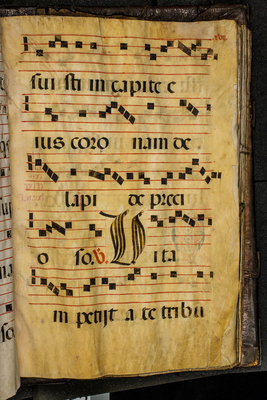 sui sti in capite e
ius coro nam de
lapi de preci
o so. V. Vita
in petijt a te tribu